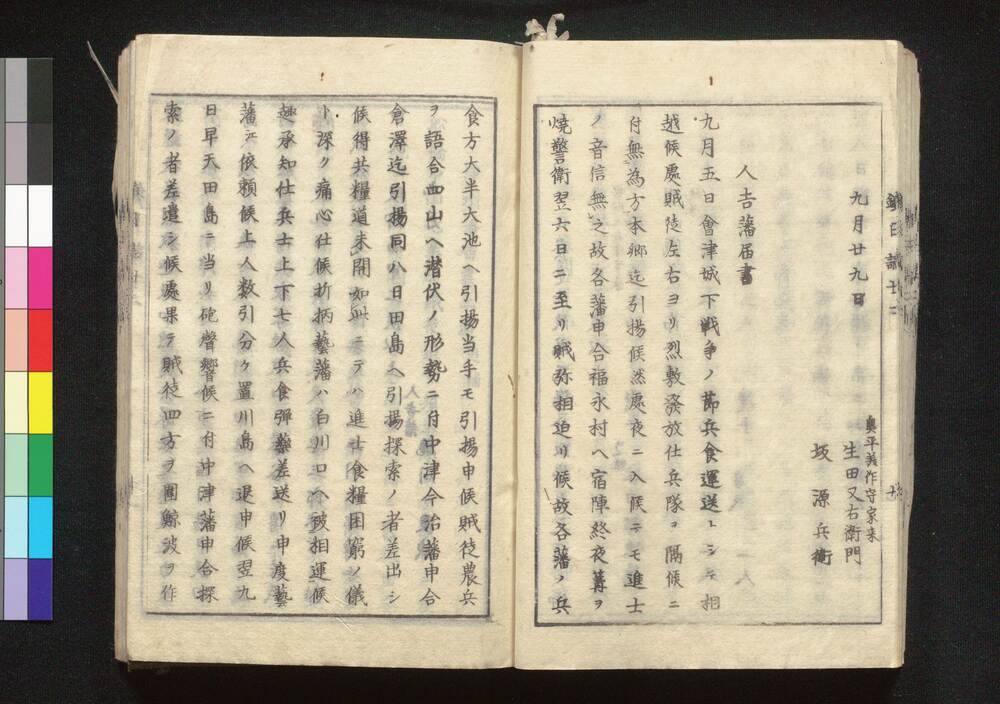 九月廿九日
奥平美作守家来
生田又右衛門
坂源兵衛
人吉藩届書
九月五日會津城下戦争ノ節兵食運送トシテ相
越候處賊徒左右ヨリ烈敷發放仕兵隊ヲ隔候ニ
付無為方本郷迄引揚候然處夜ニ入候テモ進士
ノ音信無之故各藩申合福永村ヘ宿陣終夜篝ヲ
焼警衛翌六日ニ至リ賊弥相迫リ候故各藩ノ兵
食方大半大池ヘ引揚当手モ引揚申候賊徒農兵
ヲ語合四山ヘ潜伏ノ形勢ニ付中津今治藩申合
倉澤迄引揚同八日田島ヘ引揚探索ノ者差出シ
候得共糧道未開如此ニテハ進士食糧困窮ノ儀
ト深ク痛心仕候折柄藝藩ハ白川口ヘ被相運候
趣承知仕兵士上下七人兵食弾藥差送リ申度藝
藩江依頼候上人数引分ケ置川島ヘ退申候翌九
日早天田島ニ当リ砲聲響候ニ付中津藩申合探
索ノ者差遣シ候處果テ賊徒四方ヲ圍鯨波ヲ作